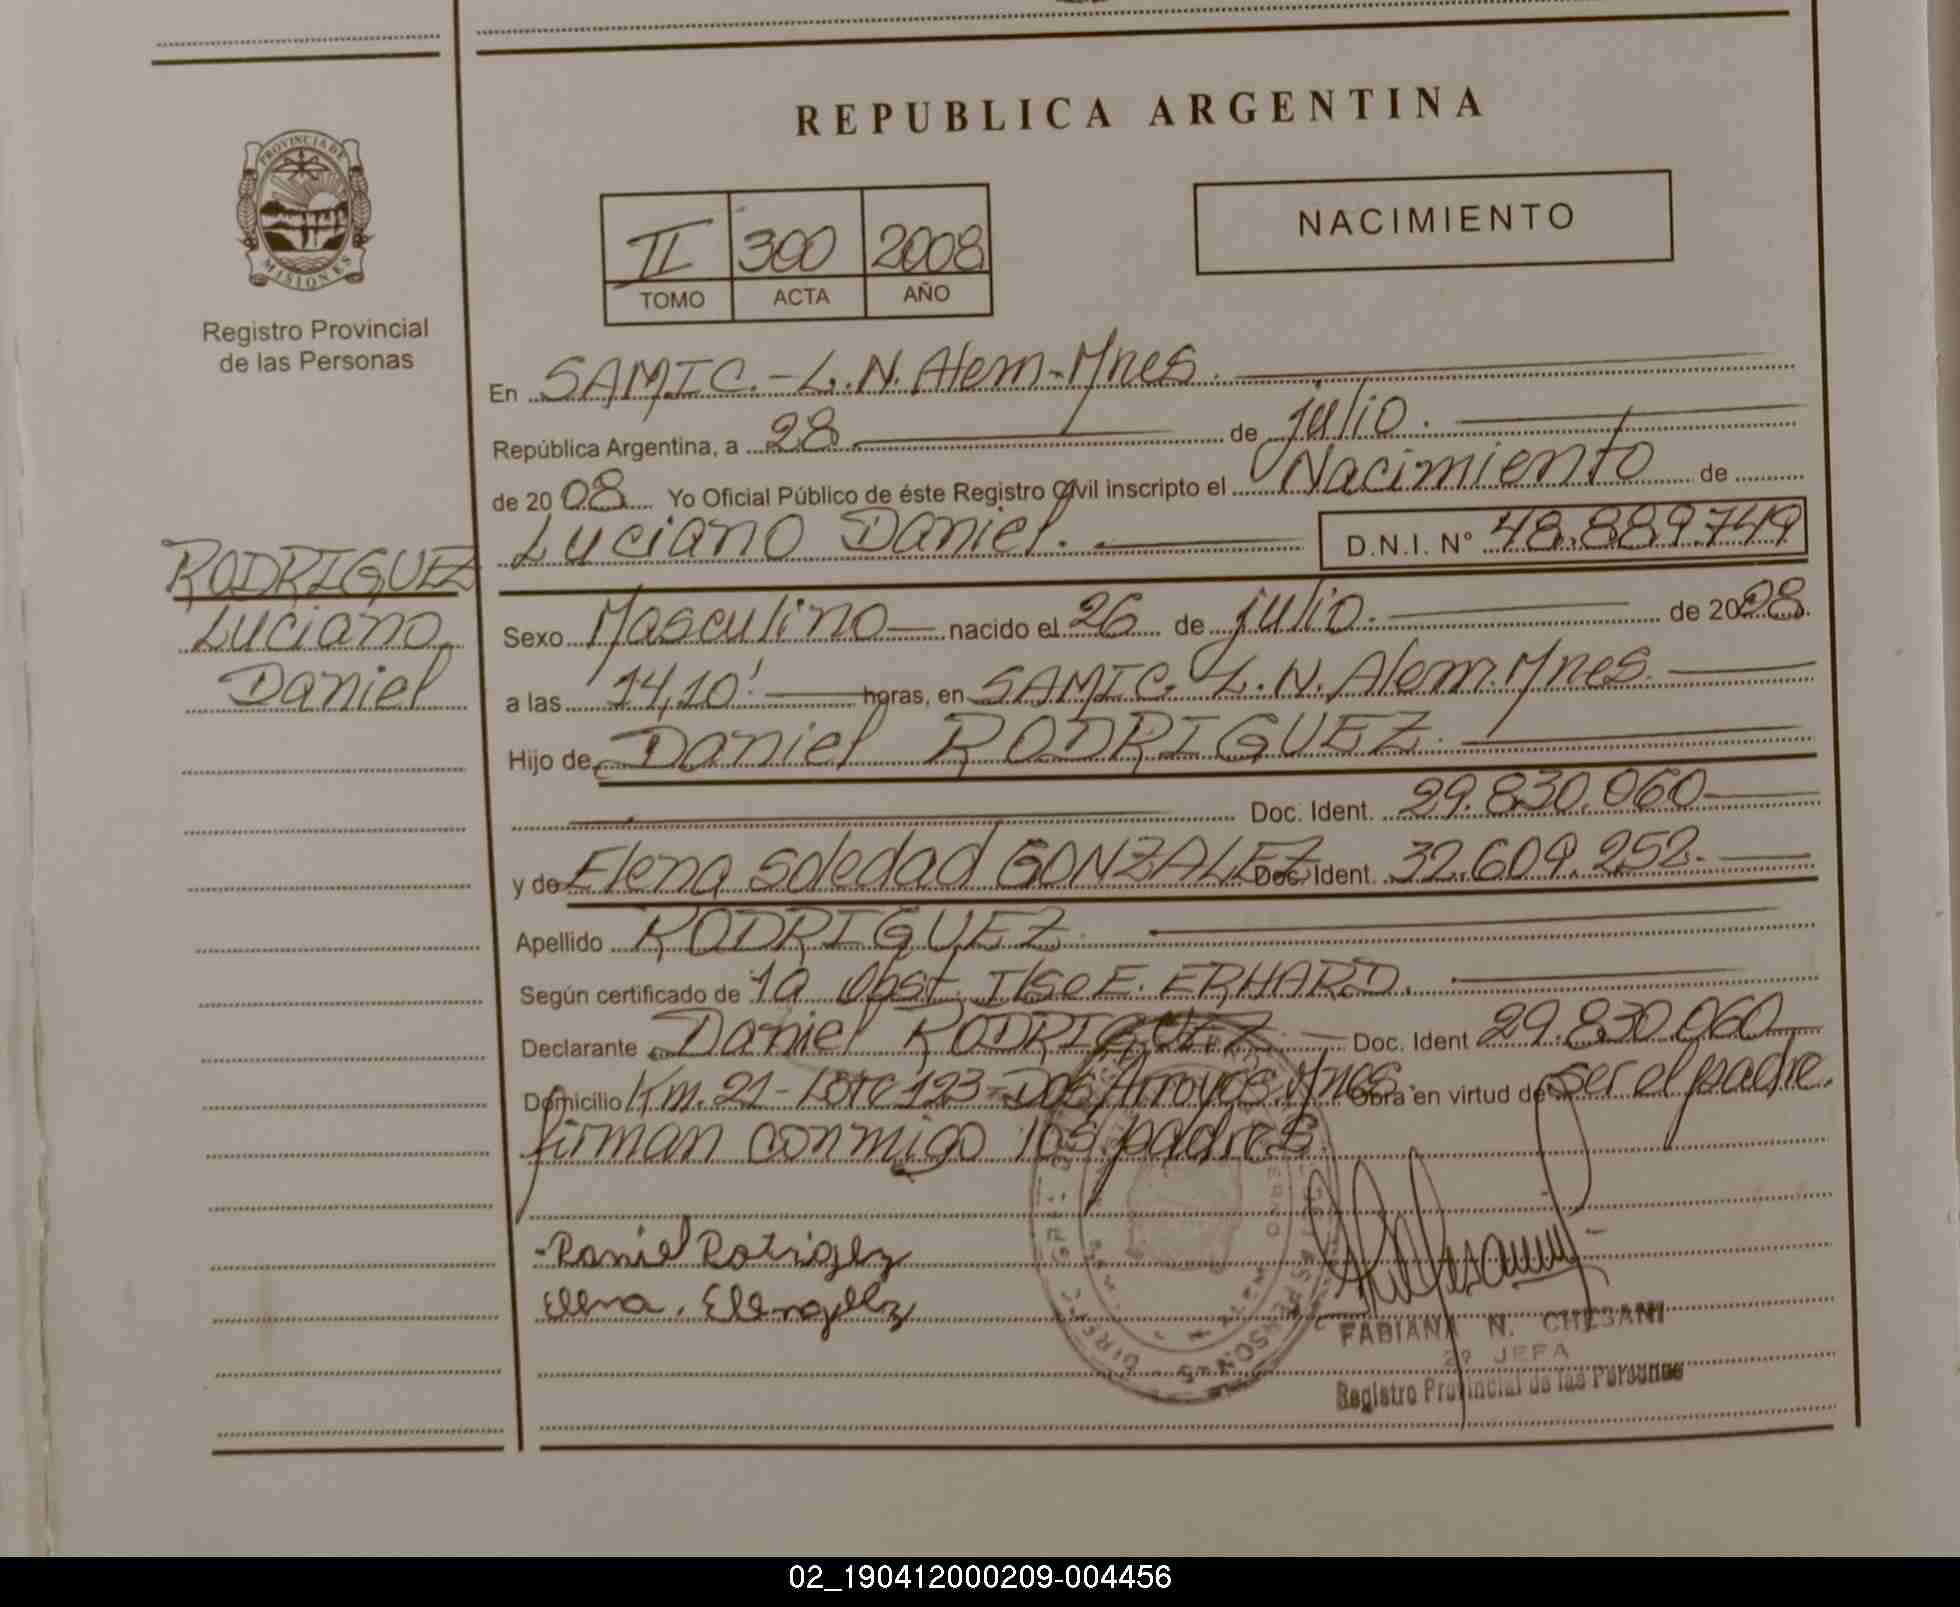 REPUBLICA ARGENTINA
PROVINCIA DE
MISIONES
Registro Provincial
de las Personas
II 300 2008
TOMO ACTA AÑO
NACIMIENTO
En SAMIC.-L.N. Alem-Mnes.
República Argentina, a 28 de julio.
de 2008 Yo Oficial Público de éste Registro Civil inscripto el Nacimiento de
Luciano Daniel. D.N.I. N° 48.889.749
RODRIGUEZ
Luciano
Daniel
Sexo Masculino nacido el 26 de julio. de 2008.
a las 14,10' horas, en SAMIC. L.N. Alem. Mnes.
Hijo de Daniel RODRIGUEZ.
Doc. Ident. 29.830.060
y de Elena Soledad GONZALEZ Doc. Ident. 32.609.252.
Apellido RODRIGUEZ.
Según certificado de la Obst. Ilse E. ERHARD.
Declarante Daniel RODRIGUEZ Doc. Ident 29.830.060
Domicilio Km. 21 - Lote 123 - Dos Arroyos. Mnes. Obra en virtud de ser el padre.
firman conmigo los padres.
Daniel
Elena.
FABIANA N. CHESANI
2º JEFA
Registro Provincial de las Personas
02_190412000209-004456